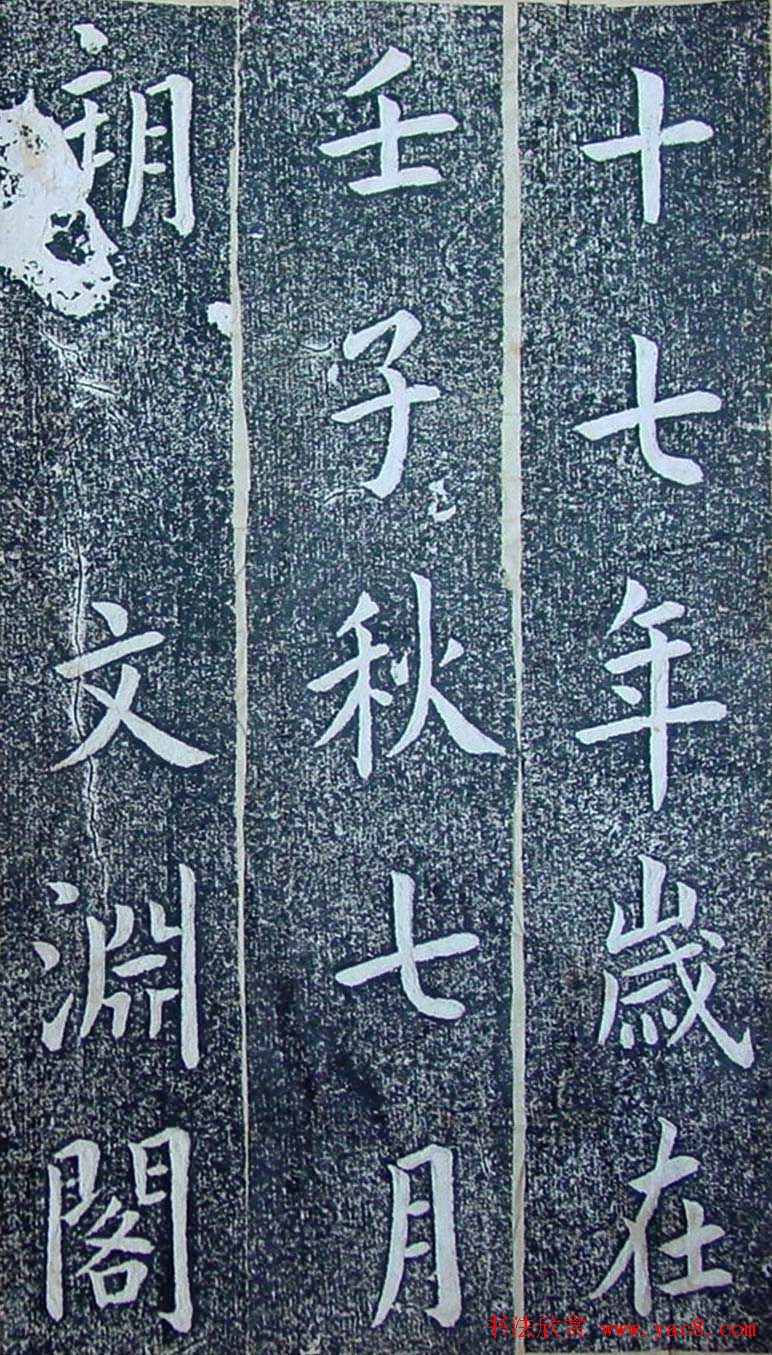 十七年歲在
壬子秋七月
朔文淵閣
书法欣赏 www.yac8.com